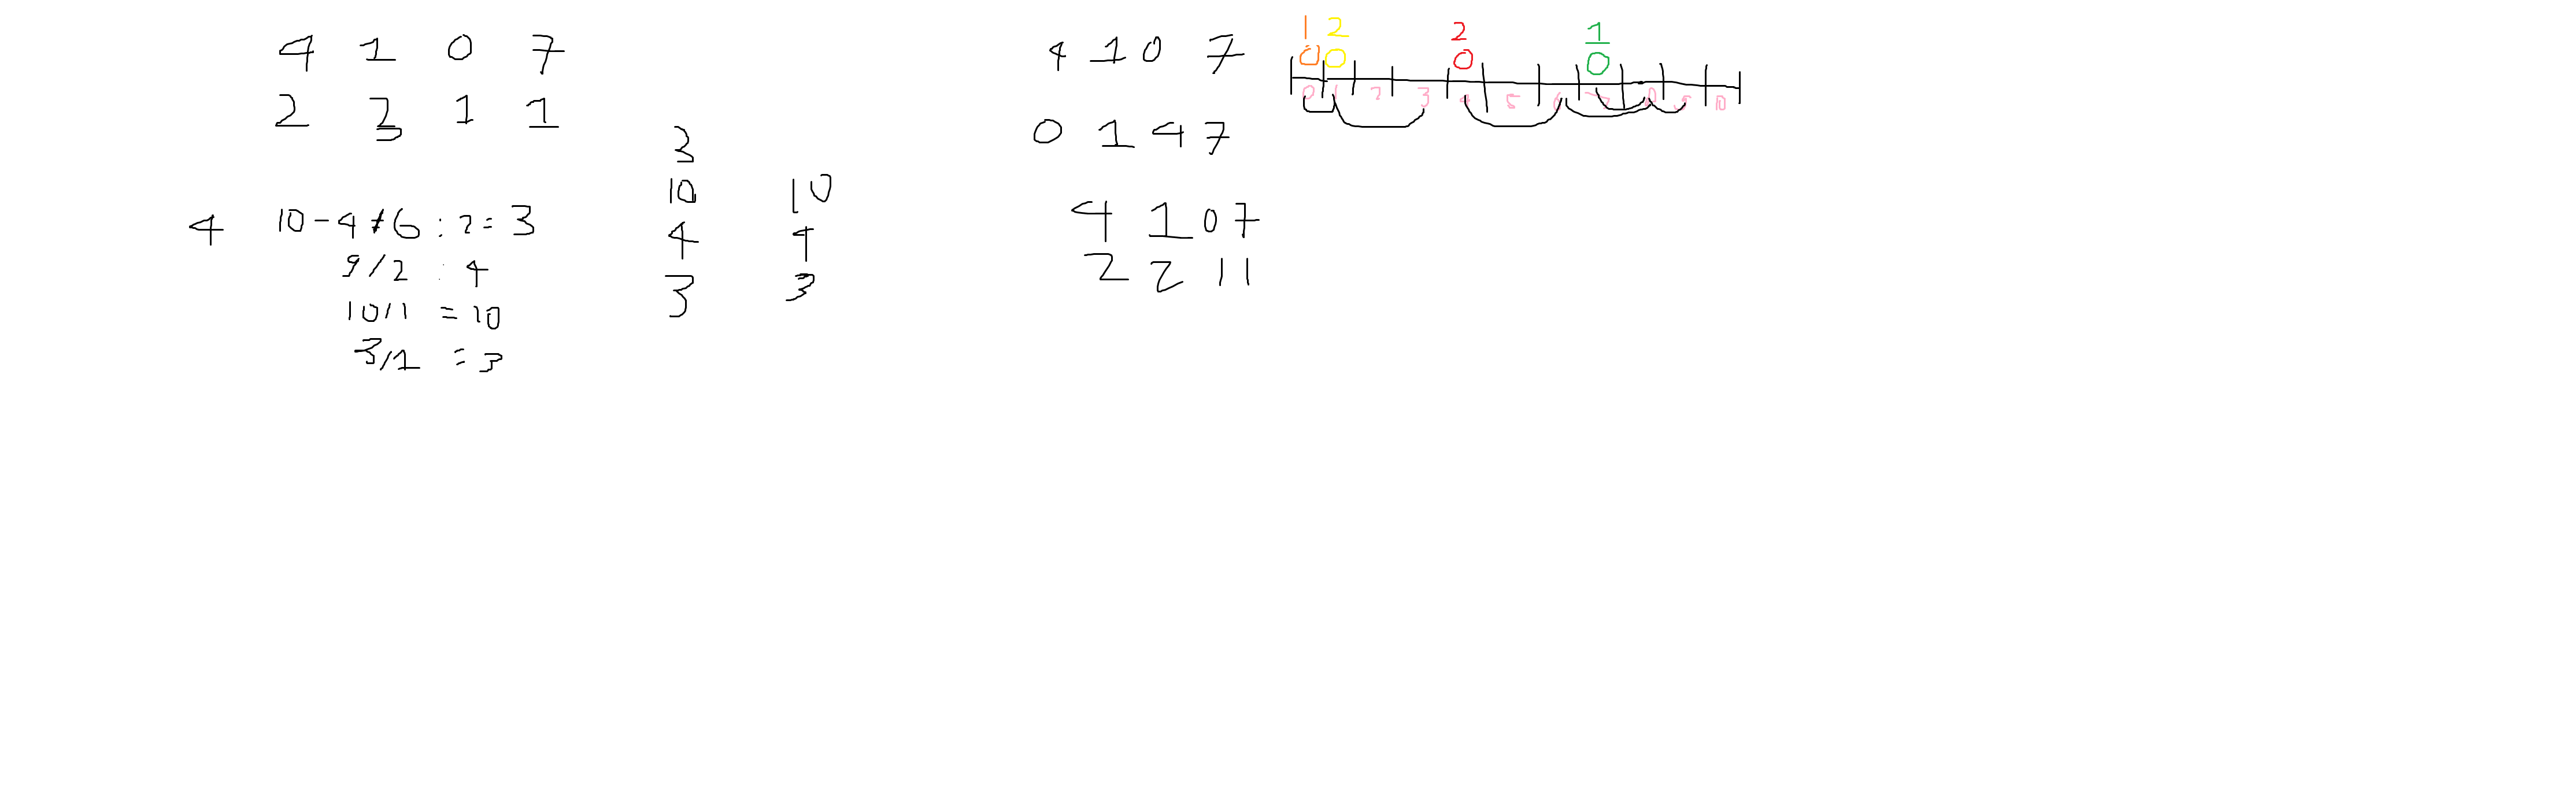 4 1 0 7
2 3 1 1
4 10-4 6 : 2 = 3
9/2 : 4
10/1 = 10
3/1 = 3
3
10
4
3
10
4
3
4 1 0 7
0 1 4 7
4 1 0 7
2 2 1 1
1 2 2 1
0 0 0 0
0 1 2 3 4 5 6 7 8 9 10